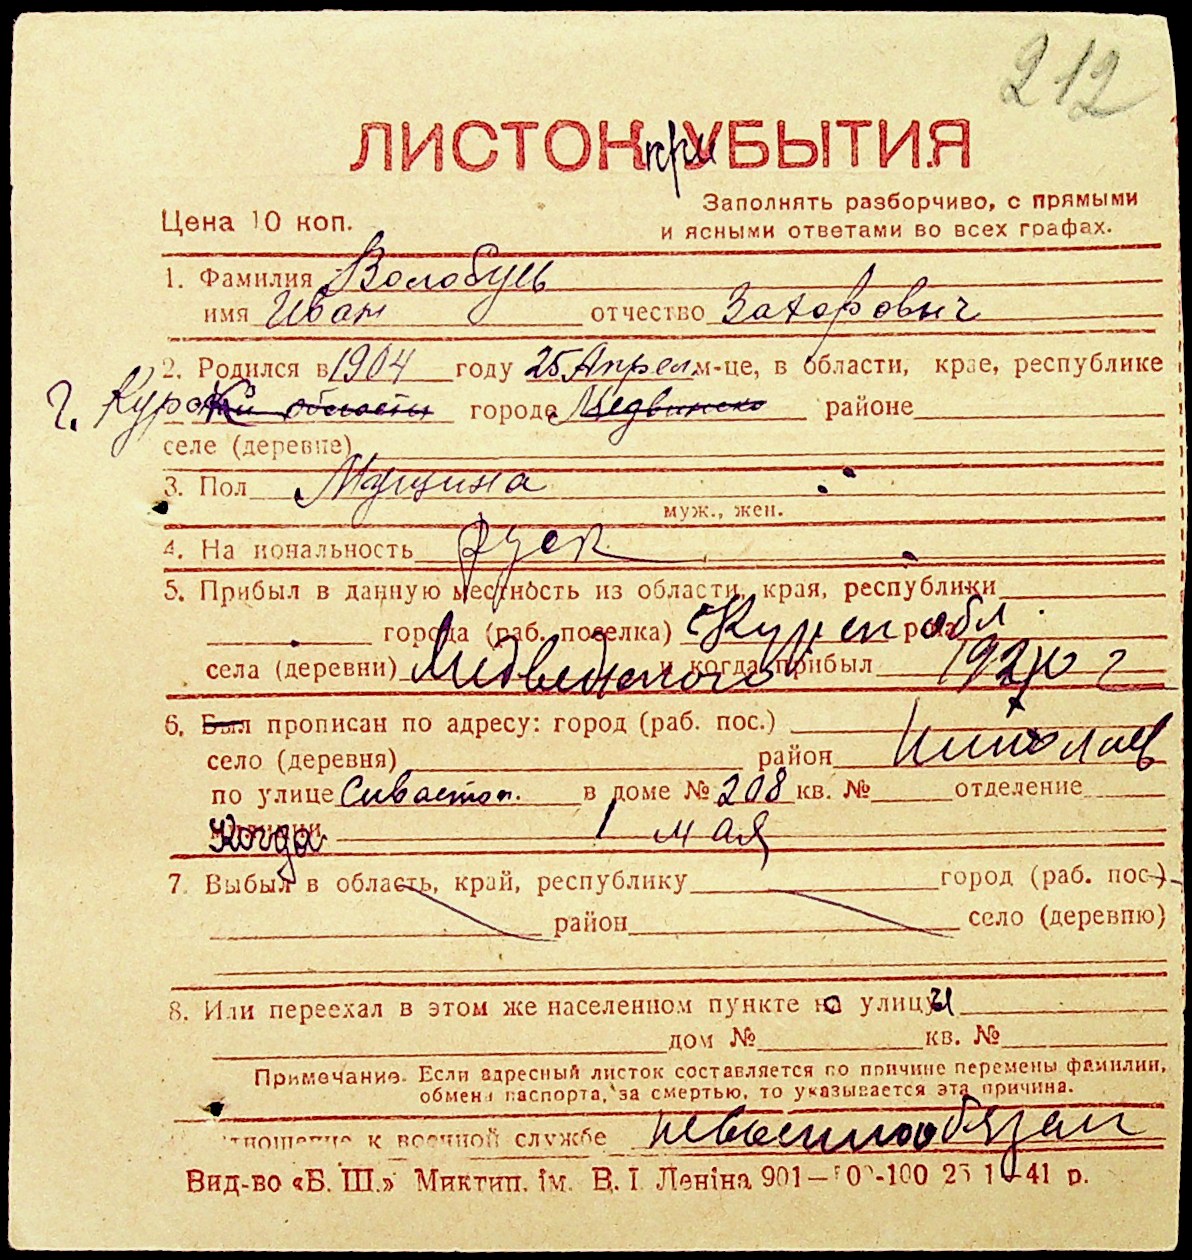 212
ЛИСТОК при УБЫТИЯ
Цена 10 коп.
Заполнять разборчиво, с прямыми
и ясными ответами во всех графах.
1. Фамилия Волобуев
имя Иван отчество Захарович
2. Родился в 1904 году 25 Апрел м-це, в области, крае, республике
г. Курс кой области городе районе
селе (деревне)
3. Пол Мущина
муж., жен.
4. На иональность руск
5. Прибыл в данную местность из области, края, республики
города (раб. поселка) Курск обл
села (деревни) Медведского и когда прибыл г
6. Был прописан по адресу: город (раб. пос.)
село (деревня) район Николаев
по улице Сивастоп. в доме № 208 кв. № отделение
Когда 1 мая
7. Выбыл в область, край, республику город (раб. пос.)
район село (деревню)
8. Или переехал в этом же населенном пункте на улицу
дом № кв. №
Примечание. Если адресный листок составляется по причине перемены фамилии,
обмена паспорта, за смертью, то указывается эта причина.
тношение к военной службе невоеннообязан
Вид-во «Б. Ш.» Миктип. ім. В. І. Леніна 901— -100 41 р.